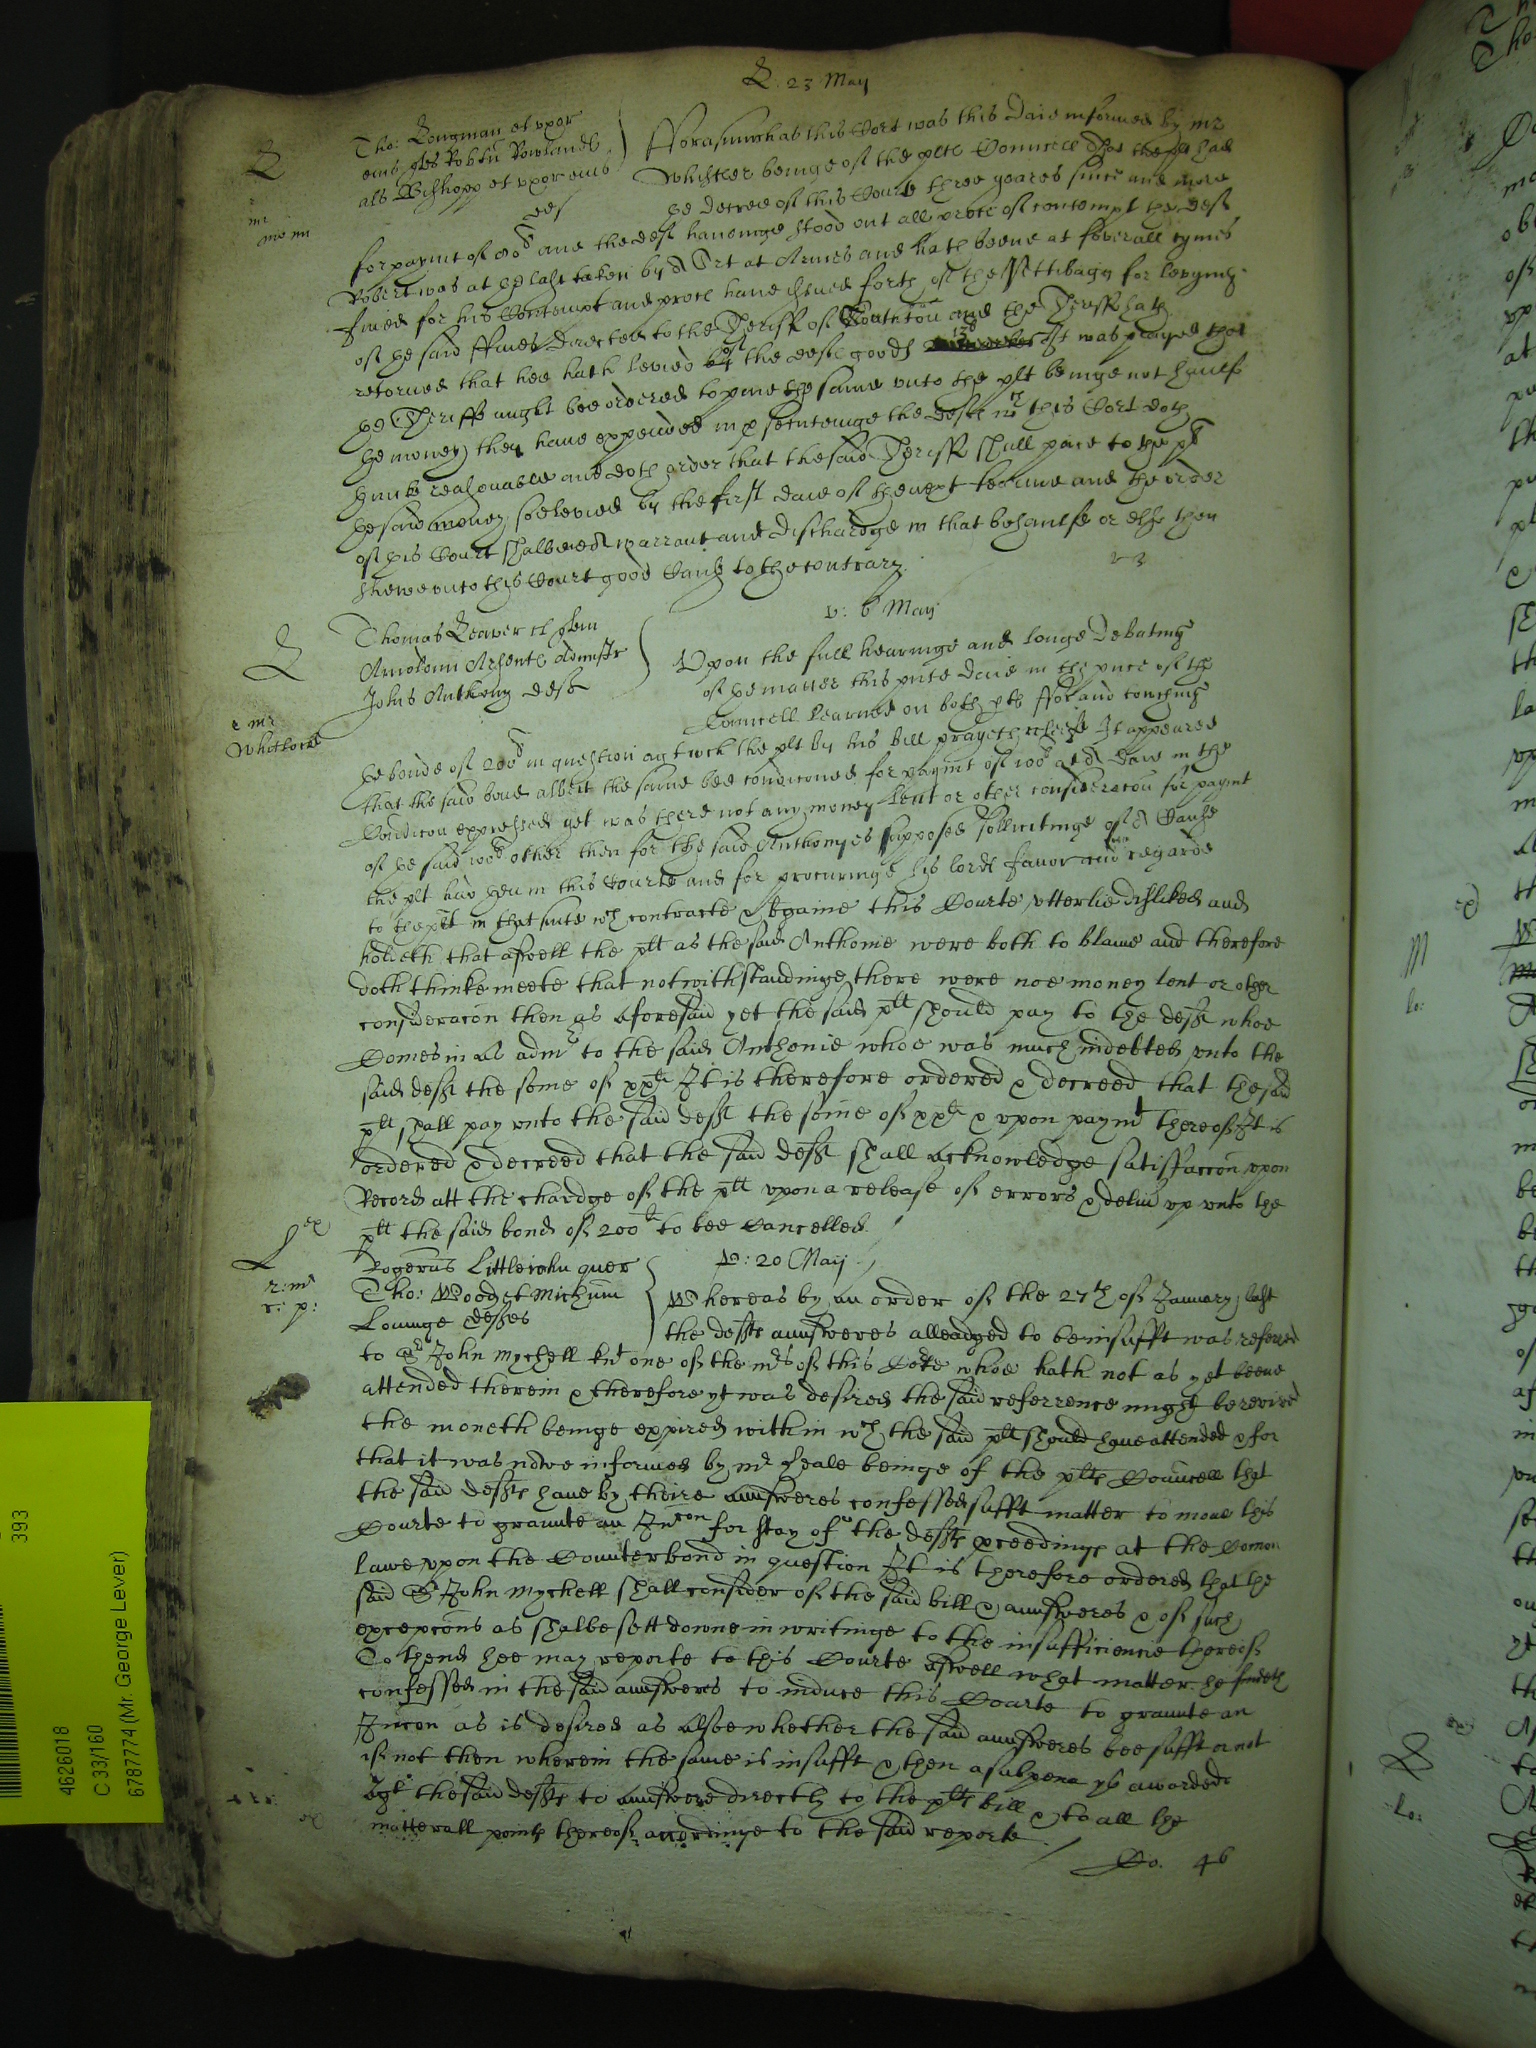 23 May
Tho: Longman et uxor
eius
als Bisshopp et uxor eius
def
Fforasmuchas this Cort was this daie informed by mr
Whistler beinge of the plts Councell that the plt had
decree of this Courte three yeares since and more
for paymt of and the deft havinge stood out all proces of contempt the deft
Robert was at last taken by a Srt at Armes and hath beene at severall tymes
fined for his Contempt and proces have issued forth of the Pettibagg for levyinge
of the said ffines directed to the Sheriff of Southton and the Sheriff hath
retorned that hee hath levied of the defts goods It was prayed that
the Sheriff might bee ordered to paie the same unto the plt beinge not haulf
the money they have expended in psecuteinge the deft wch this Cort doth
thinke reasonable and doth order that the said Sheriff shall paie to the plt
the said money soe levied by the first daie of the next tearme and the order
of this Court shalbee warrant and dischardge in that behaulfe or else then
shewe unto this Court good Cause to the contrary
v: 6 May
Thomas Leaver
Administr
Johis Anthony deft
r mr
Whitlocke
Upon the full hearinge and longe debatinge
of the matter this pnte daie in the pnce of the
Councell learned on both pts For and touchinge
the bonde of 200 in question agt wch the plt by his bill prayeth releife It appeared
that the said bond albeit the same bee condiconed for paymt of 100 at a daie in the
Condicon expressed yet was there not any money lent or other consideracon for paymt
of the said 100 other then for the said Anthonyes supposed sollicitinge of a Cause
the plt had then in this Courte and for procuringe his lordps favor and regarde
to the plt in that suite wch contracte & bgaine this Courte utterlie disliked and
holdeth that aswell the plt as the said Anthonie were both to blame and therefore
doth thinke meete that notwithstandinge there were noe money lent or other
consideracon then as aforesaid yet the said plt should pay to the deft whoe
Comes in as admr to the said Anthonie whoe was much indebted unto the
said deft the some of xxli It is therefore ordered & decreed that the said
plt shall pay unto the said deft the some of xxli & upon paymt thereof It is
ordered & decreed that the said deft shall acknowledge satisfaccon upon
Record att the chardge of the plt upon a release of errors & deliver up unto the
plt the said bond of 200li to bee Cancelled
v: 20 May
Rogerus Littlejohn quer
Tho: Wood et Michum
Lounge deftes
Whereas by an order of the 27th of January last
the defts aunsweres alleadged to be insufft was referred
to Sr John Mychell knt one of the mrs of this Corte whoe hath not as yet beene
attended therein & therefore yt was desired the said referrence might be revived
the moneth beinge expired within wch the said plt should have attended & for
that it was nowe informed by mr Heale beinge of the plts Councell that
the said defts have by theire aunsweres confessed sufft matter to move this
Courte to graunte an Incon for stay of the defts pceedings at the Comon
lawe upon the Counterbond in question It is therefore ordered that the
said Sr John Mychell shall consider of the said bill & aunsweres & of such
excepcons as shalbe sett downe in writinge to the insufficiencie thereof
To thend hee may reporte to this Courte aswell what matter he findeth
confessed in the said aunsweres to induce this Courte to graunte an
Incon as is desired as alsoe whether the said aunsweres bee sufft or not
if not then wherein the same is insufft & then a subpena ys awarded
agt the said defts to aunswere directly to the plts bill & to all the
materiall points thereof accordinge to the said reporte
Co. 46
393
4626018
C 33/160
6787774 (Mr. George Lever)